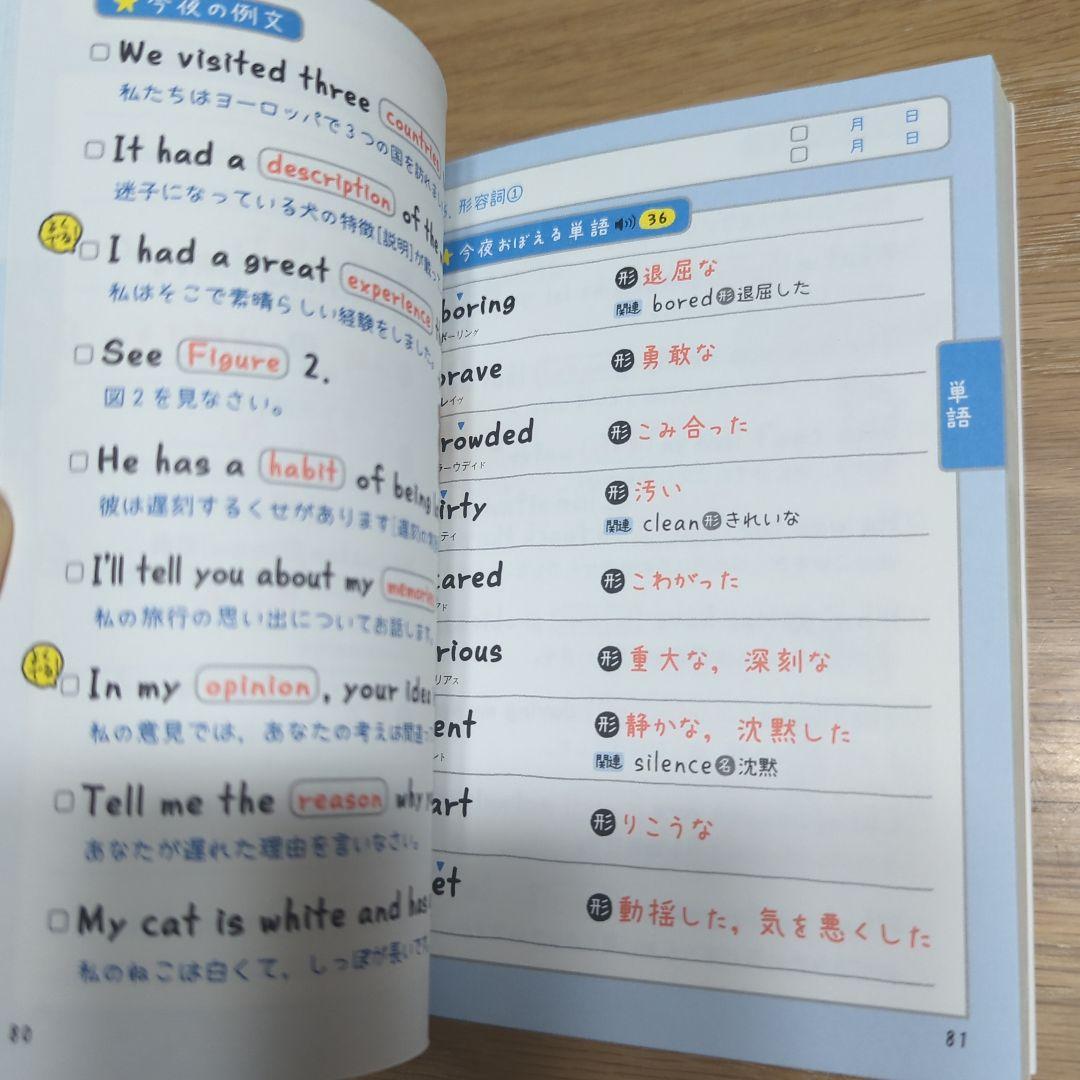 今夜の例文
We visited three countries
私たちはヨーロッパで3つの国を訪れま
It had a description of the
迷子になっている犬の特徴[説明]が
よくでる!
I had a great experience
私はそこで素晴らしい経験をしました。
See Figure 2.
図2を見なさい。
He has a habit of being
彼は遅刻するくせがあります[遅刻の
I'll tell you about my memories
私の旅行の思い出についてお話します。
よくでる!
In my opinion, your idea
私の意見では、あなたの考えは間違っ
Tell me the reason why
あなたが遅れた理由を言いなさい。
My cat is white and has
私のねこは白くて、しっぽが長いです
80
月 日
月 日
形容詞①
今夜おぼえる単語 36
boring 形 退屈な
ボーリング 関連 bored 形 退屈した
rave 形 勇敢な
レイヴ
rowded 形 こみ合った
ラーウディド
irty 形 汚い
ティ 関連 clean 形 きれいな
ared 形 こわがった
アド
rious 形 重大な, 深刻な
リアス
ent 形 静かな, 沈黙した
ント 関連 silence 名 沈黙
art 形 りこうな
et 形 動揺した, 気を悪くした
単語
81